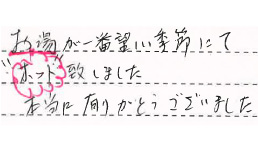 お湯が一番望しい季節にて
"ホット"致しました
本当に有りがとうございました